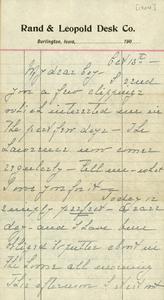 [1904]
Rand & Leopold Desk Co.
Burlington, Iowa, 190
Oct 13th
My dear boy - I send
you a few clippings
which interested me in
the past few days - The
now come
regularly - tell me - what
I owe you for it -
Today is
simply perfect - a rare
day - and I have been
about in
the home all morning
This afternoon I